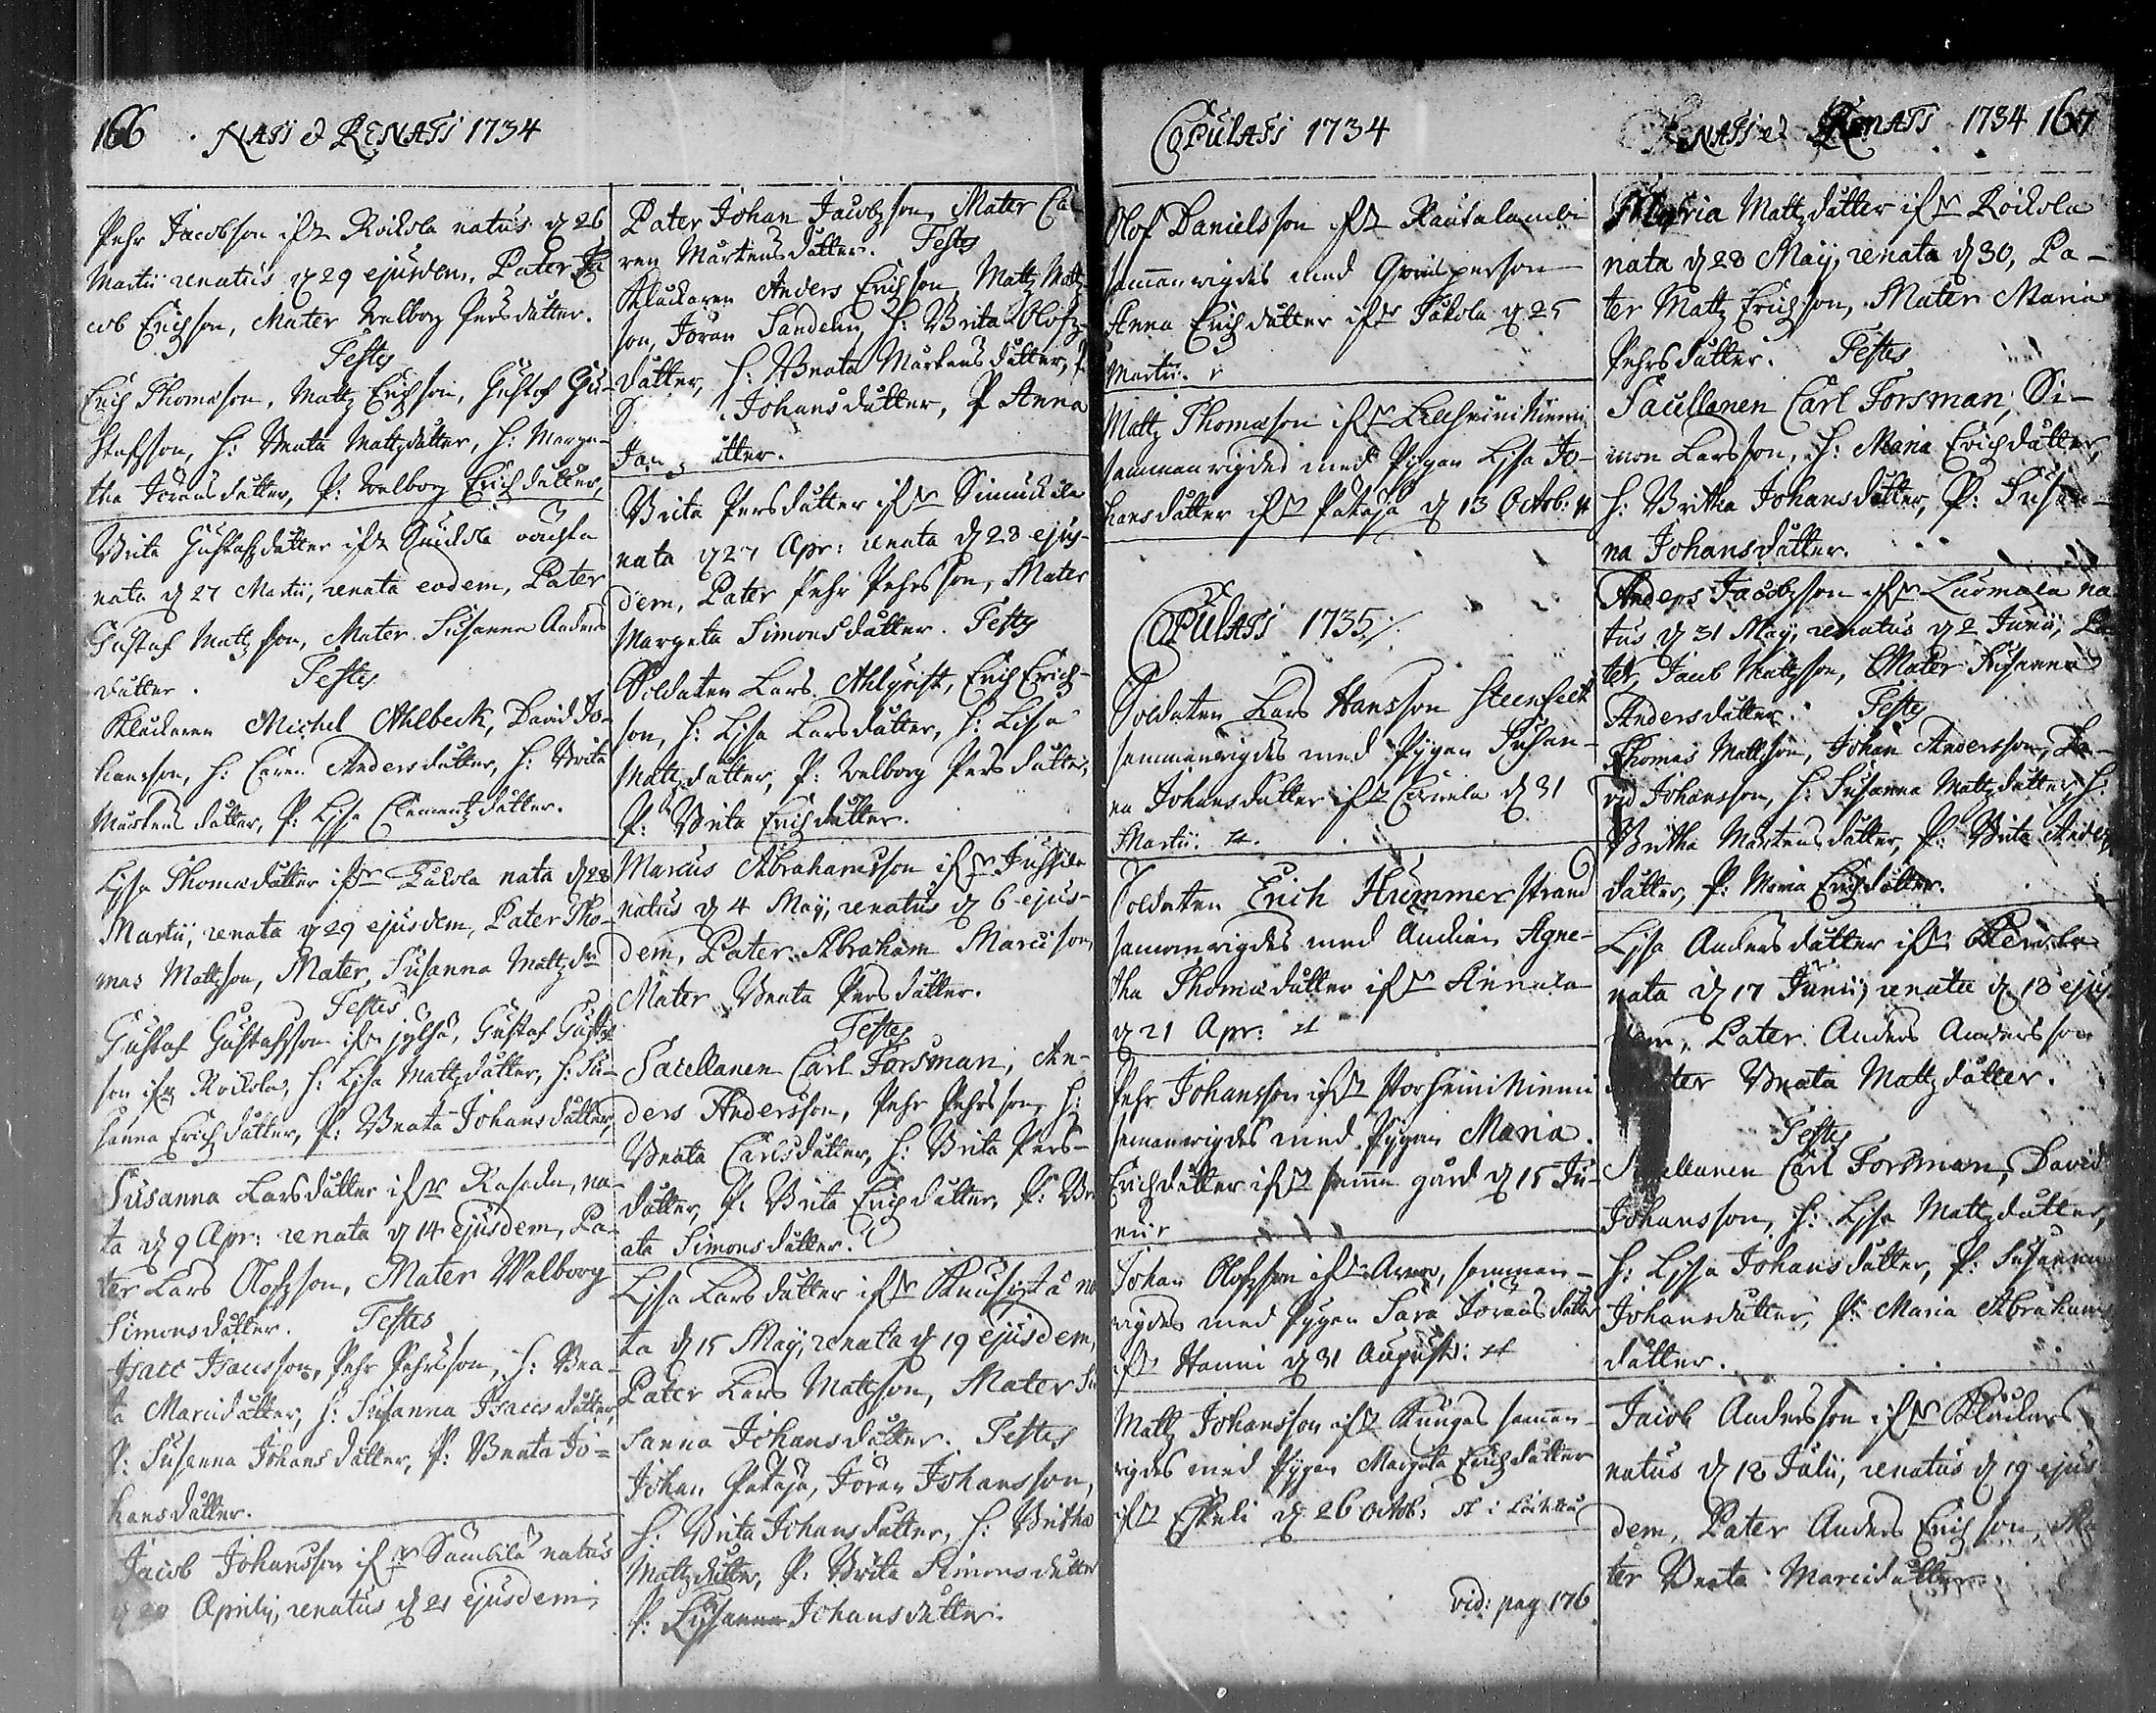 166 . NATI & RENATI 1734
Pehr Jacobsson ifr Koikola natus d 26
Martii renatus d 29 ejusdem, Pater Ja
cob Erichson, Mater Valborg Persdatter.
Testes
Erich Thomæson, Mattz Erichson, Gustaf Gu-
stafsson, H: Beata Mattzdatter, H: Marga-
tha Joransdatter, P: Valborg Erichdatter,
Brita Gustafzdatter ifr
nata d 27 Martii, renata eodem, Pater
Gustaf Mattzson, Mater Susanna Anders
datter. Testes
Klackaren Michel Ahlbeck, David Jo-
hansson, H: Caren Andersdatter, H: Brita
Martensdatter, P: Lisa Clementzdatter.
Lisa Thomædatter ifr Takola nata d 28
Martii, renata d 29 ejusdem, Pater Tho-
mas Mattzson, Mater Susanna Mattzdr
Testes
Gustaf Gustafsson ifr Gustaf Gustaf
son ifr Koikola, H: Lisa Mattzdatter, H: Su-
sanna Erichdatter, P: Beata Johansdatter,
Susanna Larsdatter ifr na-
ta d 9 Apr: renata d 14 ejusdem, Pa-
ter Lars Olofzson, Mater Walborg
Simonsdatter. Testes
Isacc Isacsson, Pehr Pehrsson, H: Bea-
ta Marcidatter, H: Susanna Isaccsdatter,
P: Susanna Johansdatter, P: Beata Jo=
hansdatter.
Jacob Johansson ifr natus
d 20 Aprilis, renatus d 21 ejusdem,
Pater Johan Jacobzson, Mater Ca
ren Martensdatter. Testes
Klackaren Anders Erichson, Mattz Mattz
son, Joran Sandelin, H: Brita Olofz-
datter, H: Beata Martensdatter,
Johansdatter, P Anna
datter.
Brita Persdatter ifr Simuckala
nata d 27 Apr: renata d 28 ejus-
dem, Pater Pehr Pehrsson, Mater
Margeta Simonsdatter. Testes
Soldaten Lars Ahlqvist, Erich Erich-
son, H: Lisa Larsdatter, H: Lisa
Mattzdatter, P: Valborg Persdatter,
P: Brita Erichdatter.
Marcus Abrahamsson ifr Jussila
natus d 4 May, renatus d 6 ejus-
dem, Pater Abraham Marcison,
Mater Beata Persdatter.
Testes
Sacellanen Carl Forsman, An-
ders Andersson, Pehr Pehrsson, H:
Beata Carlsdatter, H: Brita Pers-
datter, P: Brita Erichdatter, P: Be
ata Simonsdatter.
Lisa Larsdatter ifr na
ta d 15 May, renata d 19 ejusdem,
Pater Lars Mattzson, Mater Su
sanna Johansdatter. Testes
Johan Pataja, Joran Johansson,
H: Brita Johansdatter, H: Britha
Mattzdatter, P: Brita Simonsdatter
P: Johansdatter.
COPULATI 1734
Olof Danielsson ifr Rautalambi
sammanvigdes med Qvinsperson
Anna Erichdatter ifr Takola d 25
Martii.
Mattz Thomæson ifr
sammanvigdes med Pigan Lisa Jo-
hansdatter ifr Pataja d 13 Octob:
COPULATI 1735
Soldaten Lars Hansson Steenfelt
sammanvigdes med Pigan Susan-
na Johansdatter ifr d 31
Martii.
Soldaten Erich Hummerstrand
sammanvigdes med Enckian Agne-
tha Thomædatter ifr Annala
d 21 Apr:
Pehr Johansson ifr Storheininiemi
sammanvigdes med Pigan Maria
Erichdatter ifr samma gård d 15 Ju-
nii
Johan Olofzson ifr samman-
vigdes med Pigan Sara Joransdatter
ifr Hanni d 31 August:
Mattz Johansson ifr Kangas samman-
vigdes med Pigan Margeta Erichdatter
ifr Eskeli d 26 Octob:
vid: pag 176
NATI et RENATI 1734 167
Maria Mattzdatter ifr Koikola
nata d 28 May, renata d 30, Pa-
ter Mattz Erichson, Mater Maria
Pehrsdatter. Testes
Sacellanen Carl Forsman, Si-
mon Larsson, H: Maria Erichdatter,
H: Britha Johansdatter, P: Susan-
na Johansdatter.
Anders Jacobzson ifr Luomala na
tus d 31 May, renatus d 2 Junii, Pa
ter, Jacob Mattzson, Mater Susanna
Andersdatter. Testes
Thomas Mattzson, Johan Andersson, Da-
vid Johansson, H: Susanna Mattzdatter, H:
Britha Martensdatter, P: Brita Anders
datter, P: Maria Erichdatter.
Lisa Andersdatter ifr
nata d 17 Junii, renata d 18 ejus
dem, Pater Anders Andersson
Mater Beata Mattzdatter.
Testes
Sacellanen Carl Forsman, David
Johansson, H: Lisa Mattzdatter,
H: Lisa Johansdatter, P: Susanna
Johansdatter, P: Maria Abrahams
datter.
Jacob Andersson ifr Klackars
natus d 18 Julii, renatus d 19 ejus
dem, Pater Anders Erichson, Ma
ter Beata Marcidatter.